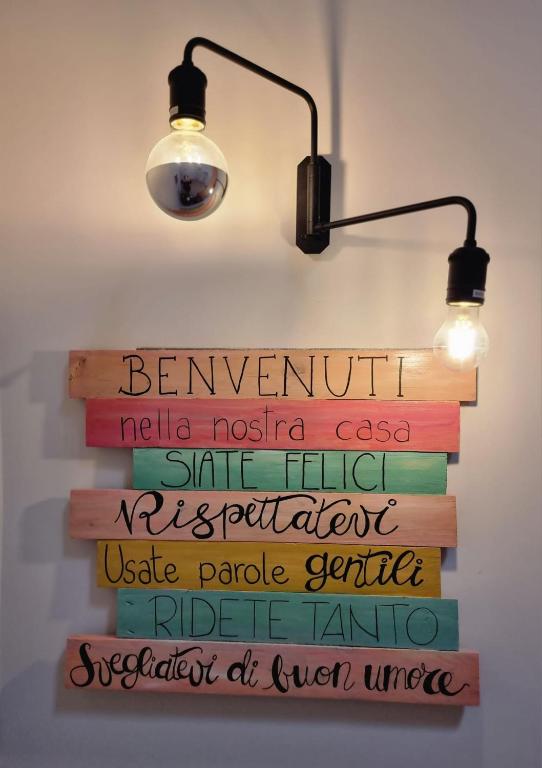 BENVENUTI
nella nostra casa
SIATE FELICI
Rispettatevi
Usate parole gentili
RIDETE TANTO
Svegliatevi di buon umore